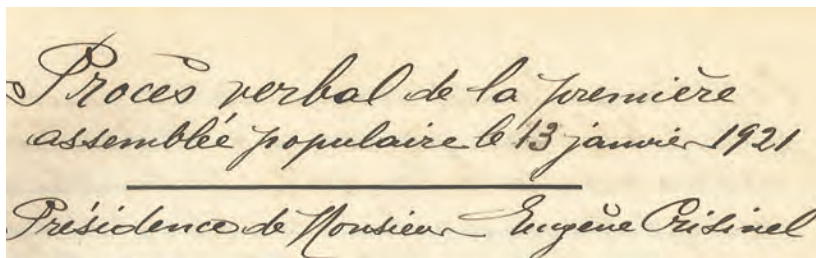 Procès verbal de la première
assemblée populaire le 13 janvier 1921
Présidence de Monsieur Eugène Crisinel